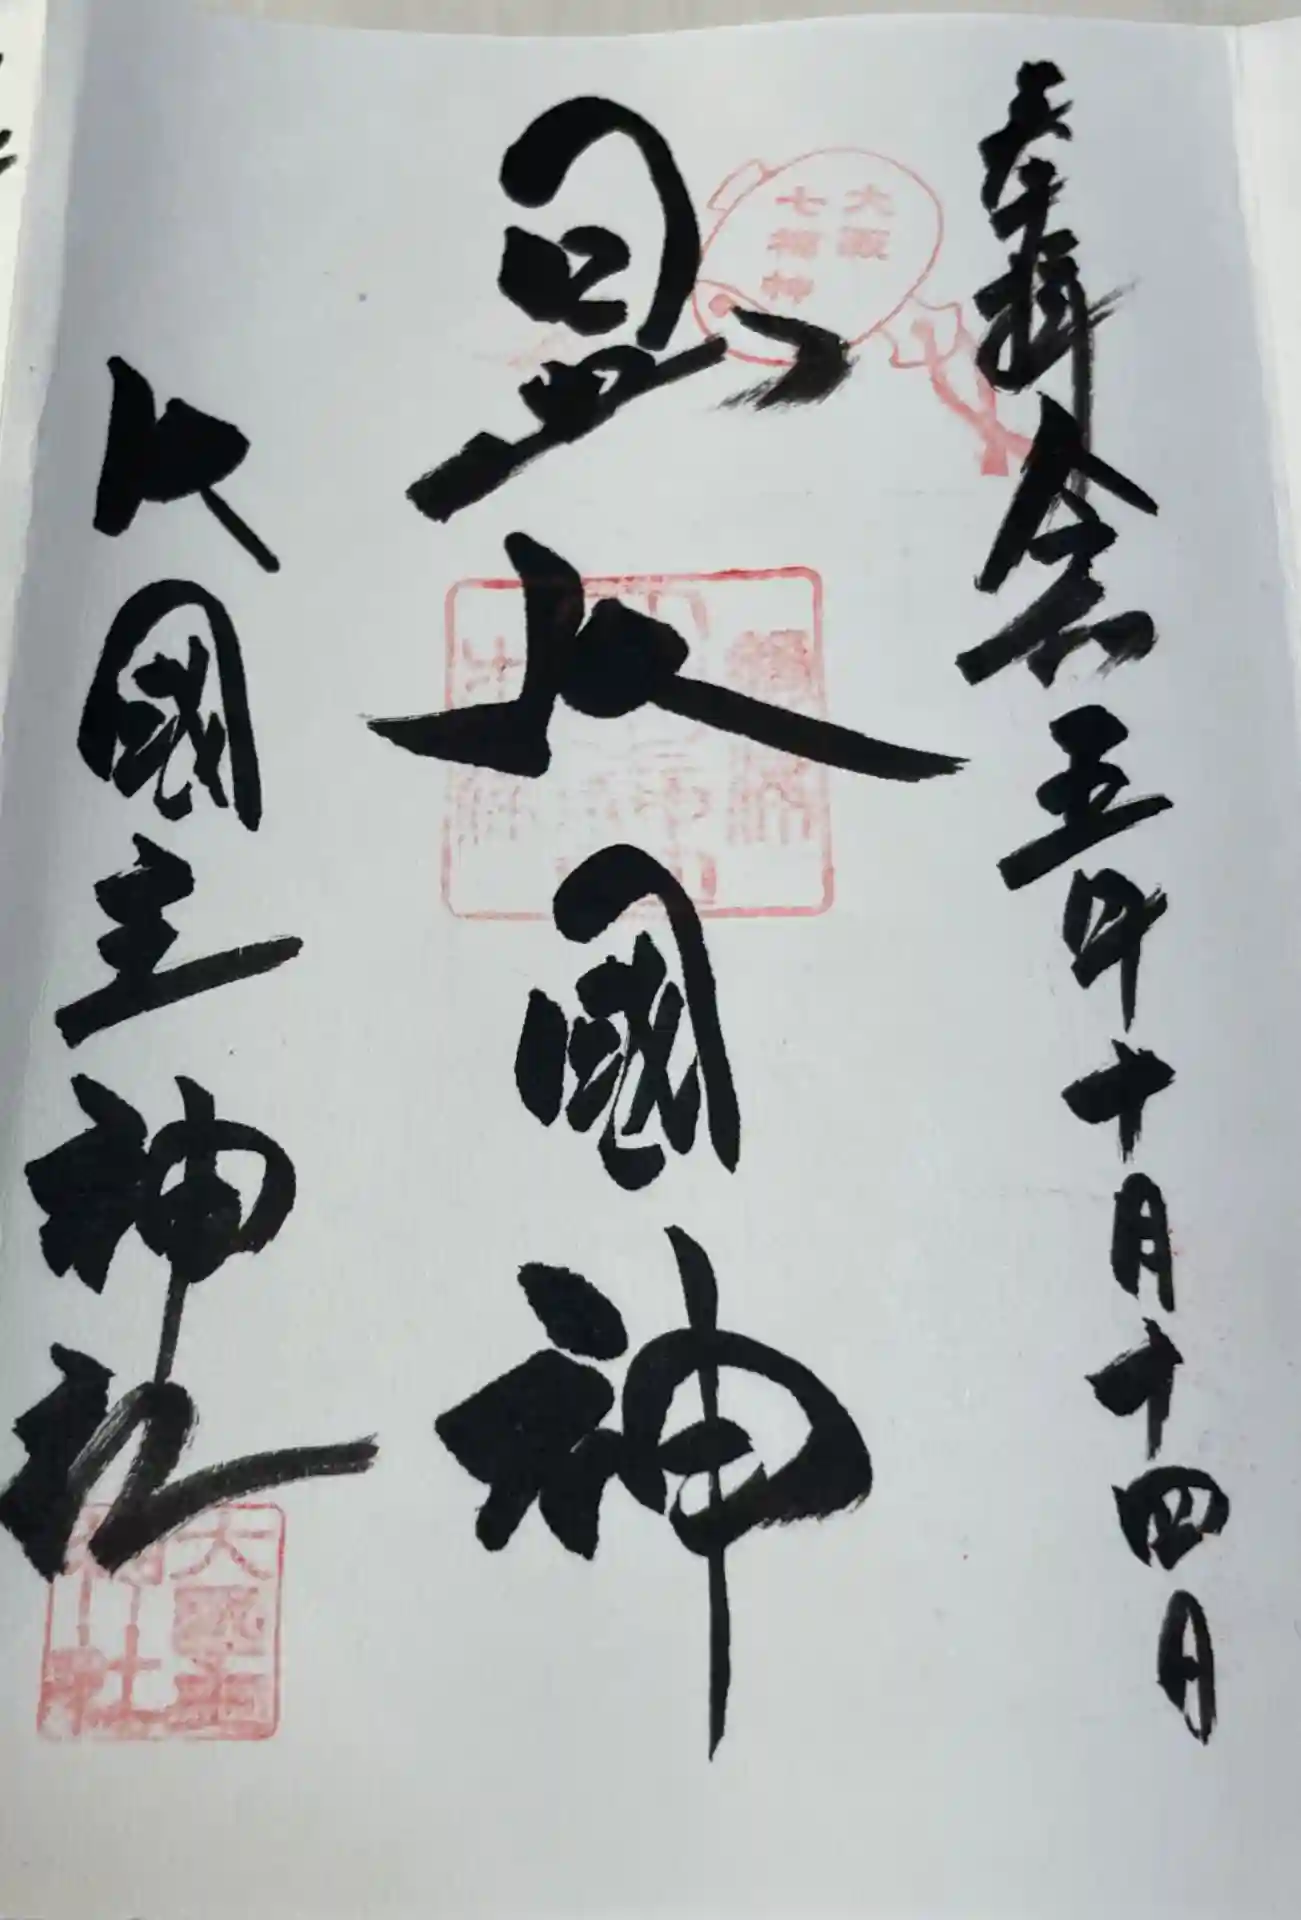 奉拝 令和五年十月十四日
大阪
七福神
大國神
大國主神社